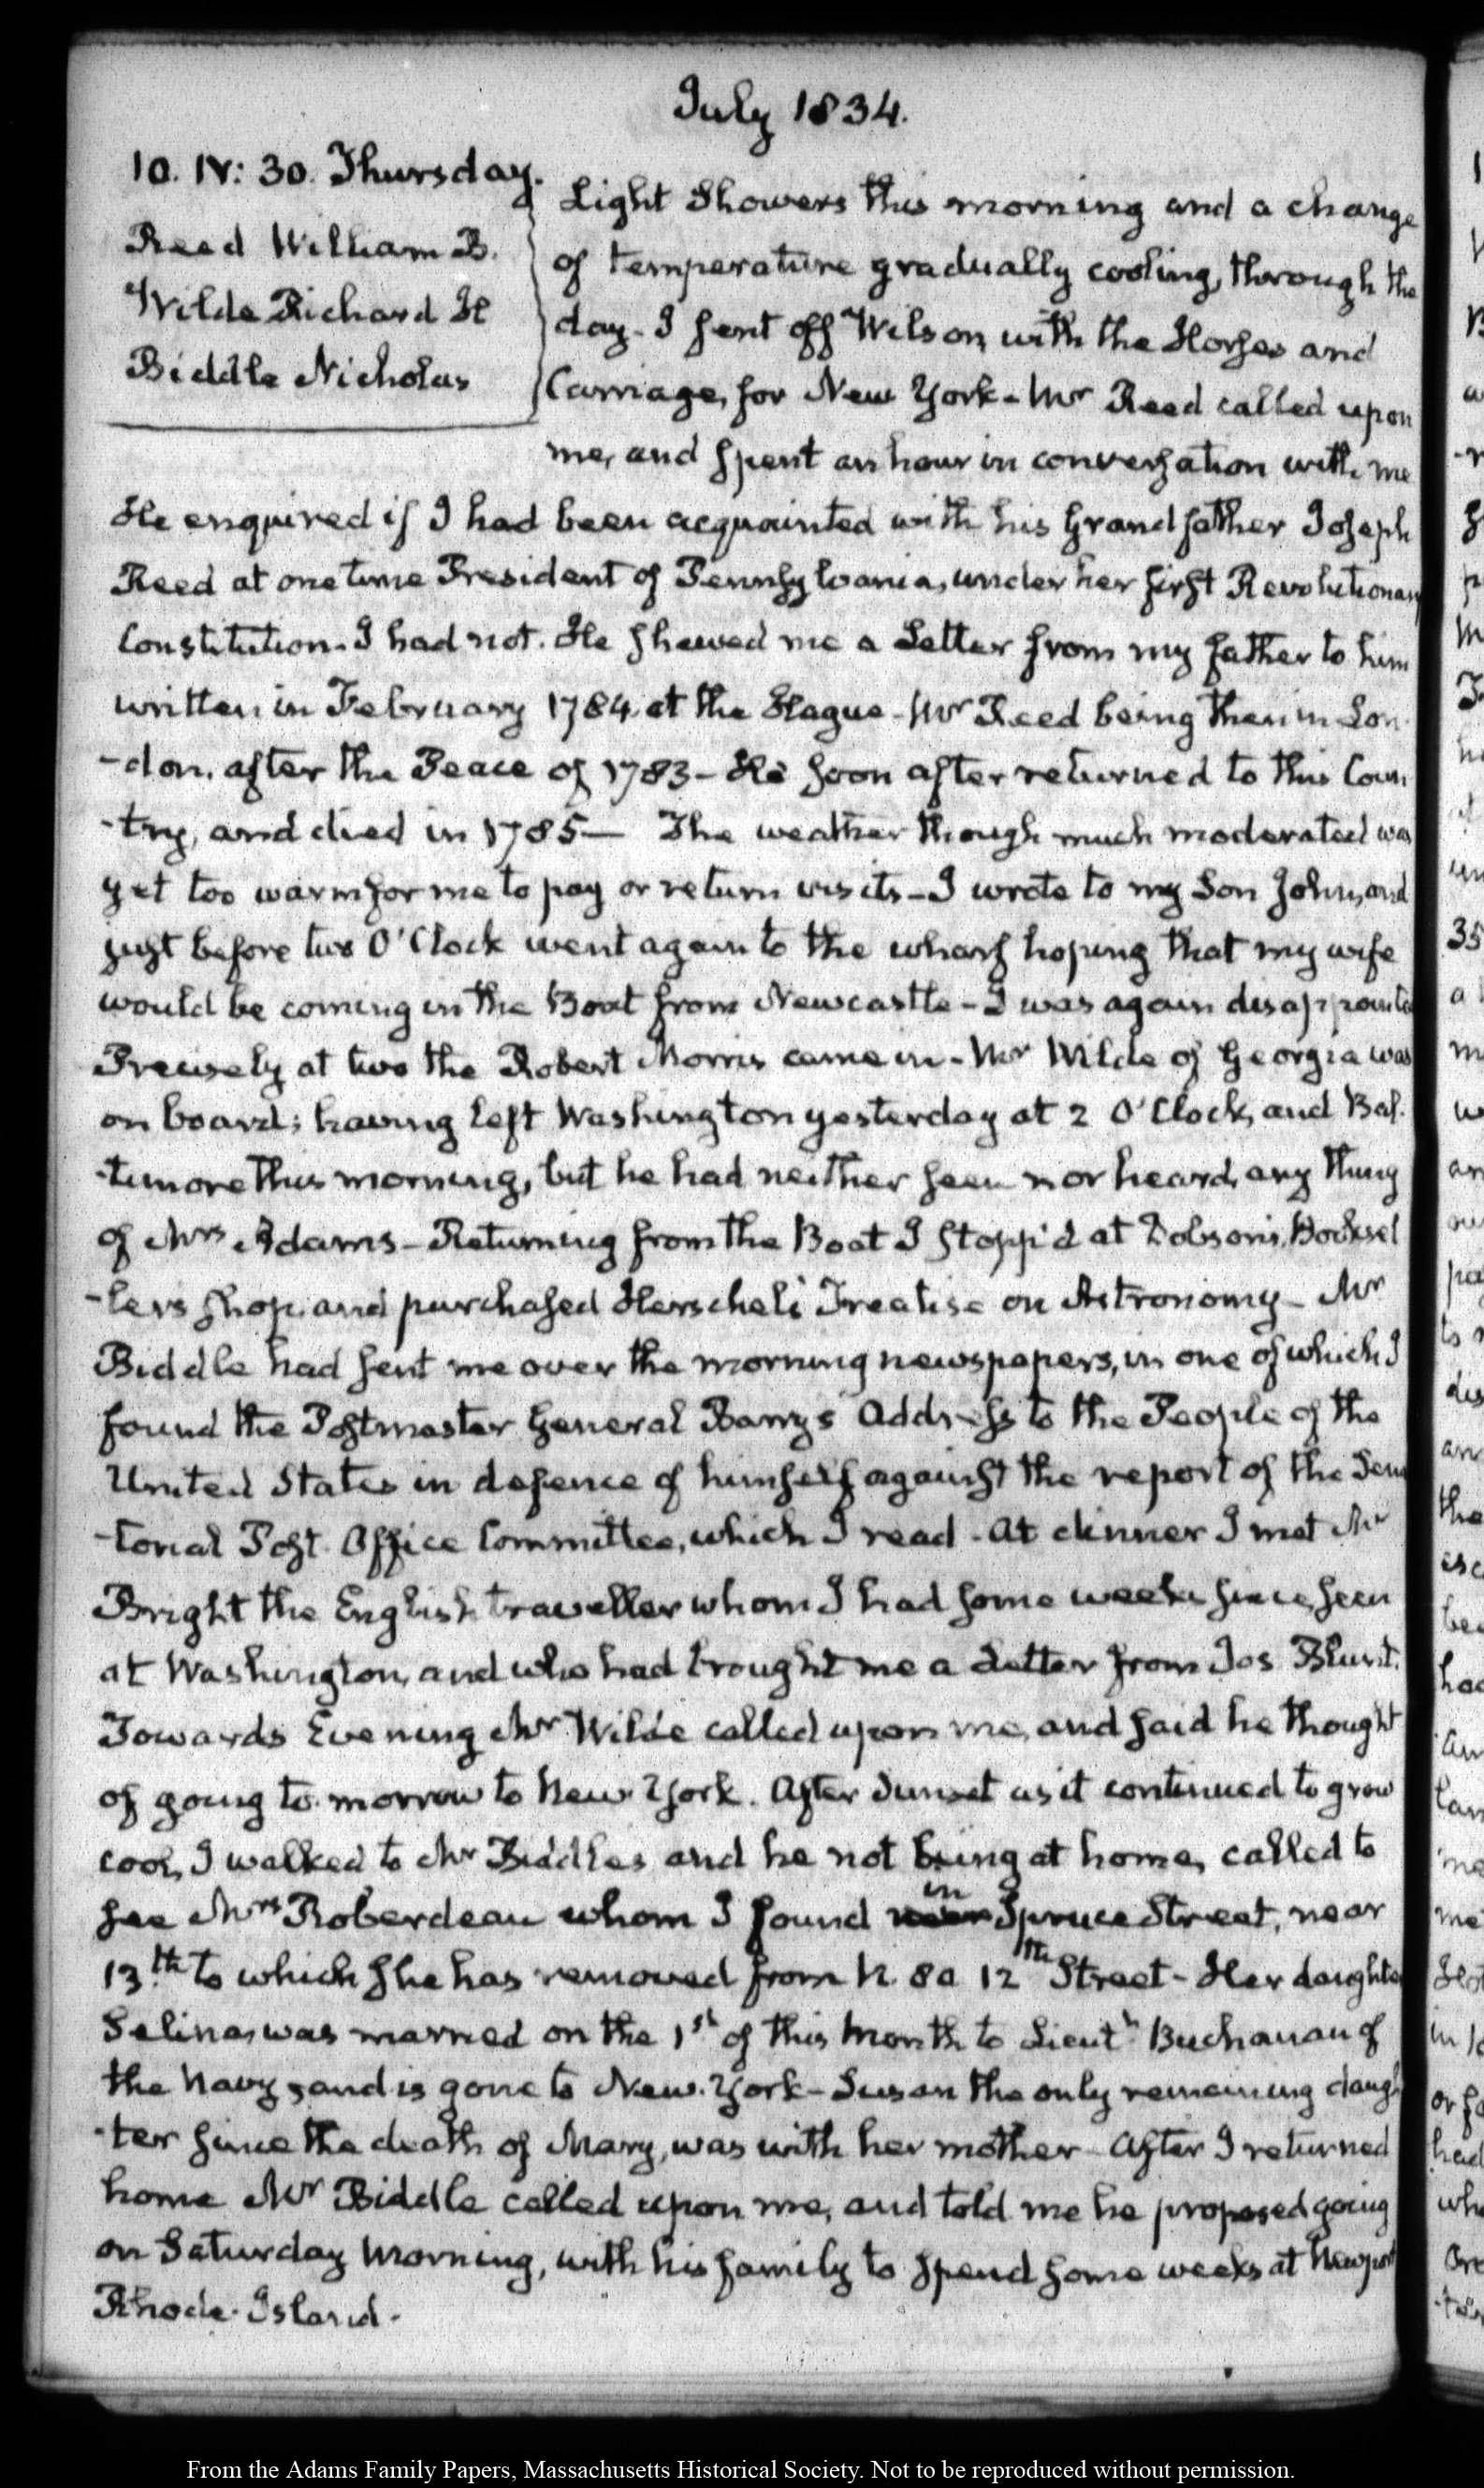 July 1834.
10. IV: 30. Thursday.
Reed William B.
Wilde Richard H
Biddle Nicholas
Light Showers this morning and a change
of temperature gradually cooling, through the
day. I sent off Wilson, with the Horses and
Carriage, for New York - Mr Reed called upon
me, and spent an hour in conversation with me
He enquired if I had been acquainted with his Grandfather Joseph
Reed at one time President of Pennsylvania, under her first Revolutionary
Constitution. I had not. He shewed me a Letter from my father to him
written in February 1784 at the Hague - Mr Reed being then in Lon
-don, after the Peace of 1783 - He soon after returned to this Coun
-try, and died in 1785 — The weather though much moderated was
yet too warm for me to pay or return visits - I wrote to my Son John, and
just before two O'Clock went again to the wharf hoping that my wife
would be coming in the Boat from Newcastle - I was again disappointed
Precisely at two the Robert Morris came in - Mr Wilde of Georgia was
on board; having left Washington yesterday at 2 O'Clock, and Bal.
-timore this morning, but he had neither seen nor heard, any thing
of Mrs Adams - Returning from the Boat I stopp'd at Dobson's, Booksel
-lers shop, and purchased Herschel's Treatise on Astronomy - Mr
Biddle had sent me over the morning newspapers, in one of which I
found the Postmaster General Barry's Address to the People of the
United States in defence of himself against the report of the Sena
-torial Post Office Committee, which I read - At dinner I met Mr
Bright the English traveller whom I had some weeks since, seen
at Washington, and who had brought me a Letter from Jos Blunt.
Towards Evening Mr Wilde called upon me, and said he thought
of going to-morrow to New-York. After Sunset as it continued to grow
cool, I walked to Mr Biddles and he not being at home, called to
see Mrs Roberdeau whom I found near in Spruce Street, near
13th. to which she has removed from N. 80 12th Street - Her daughter
Selina, was married on the 1st of this Month to Lieutt Buchanan of
the Navy, and is gone to New-York - Susan the only remaining daugh
-ter since the death of Mary, was with her mother - After I returned
home Mr Biddle called upon me, and told me he proposed going
on Saturday Morning, with his family to spend some weeks at Newport
Rhode-Island -
From the Adams Family Papers, Massachusetts Historical Society. Not to be reproduced without permission.